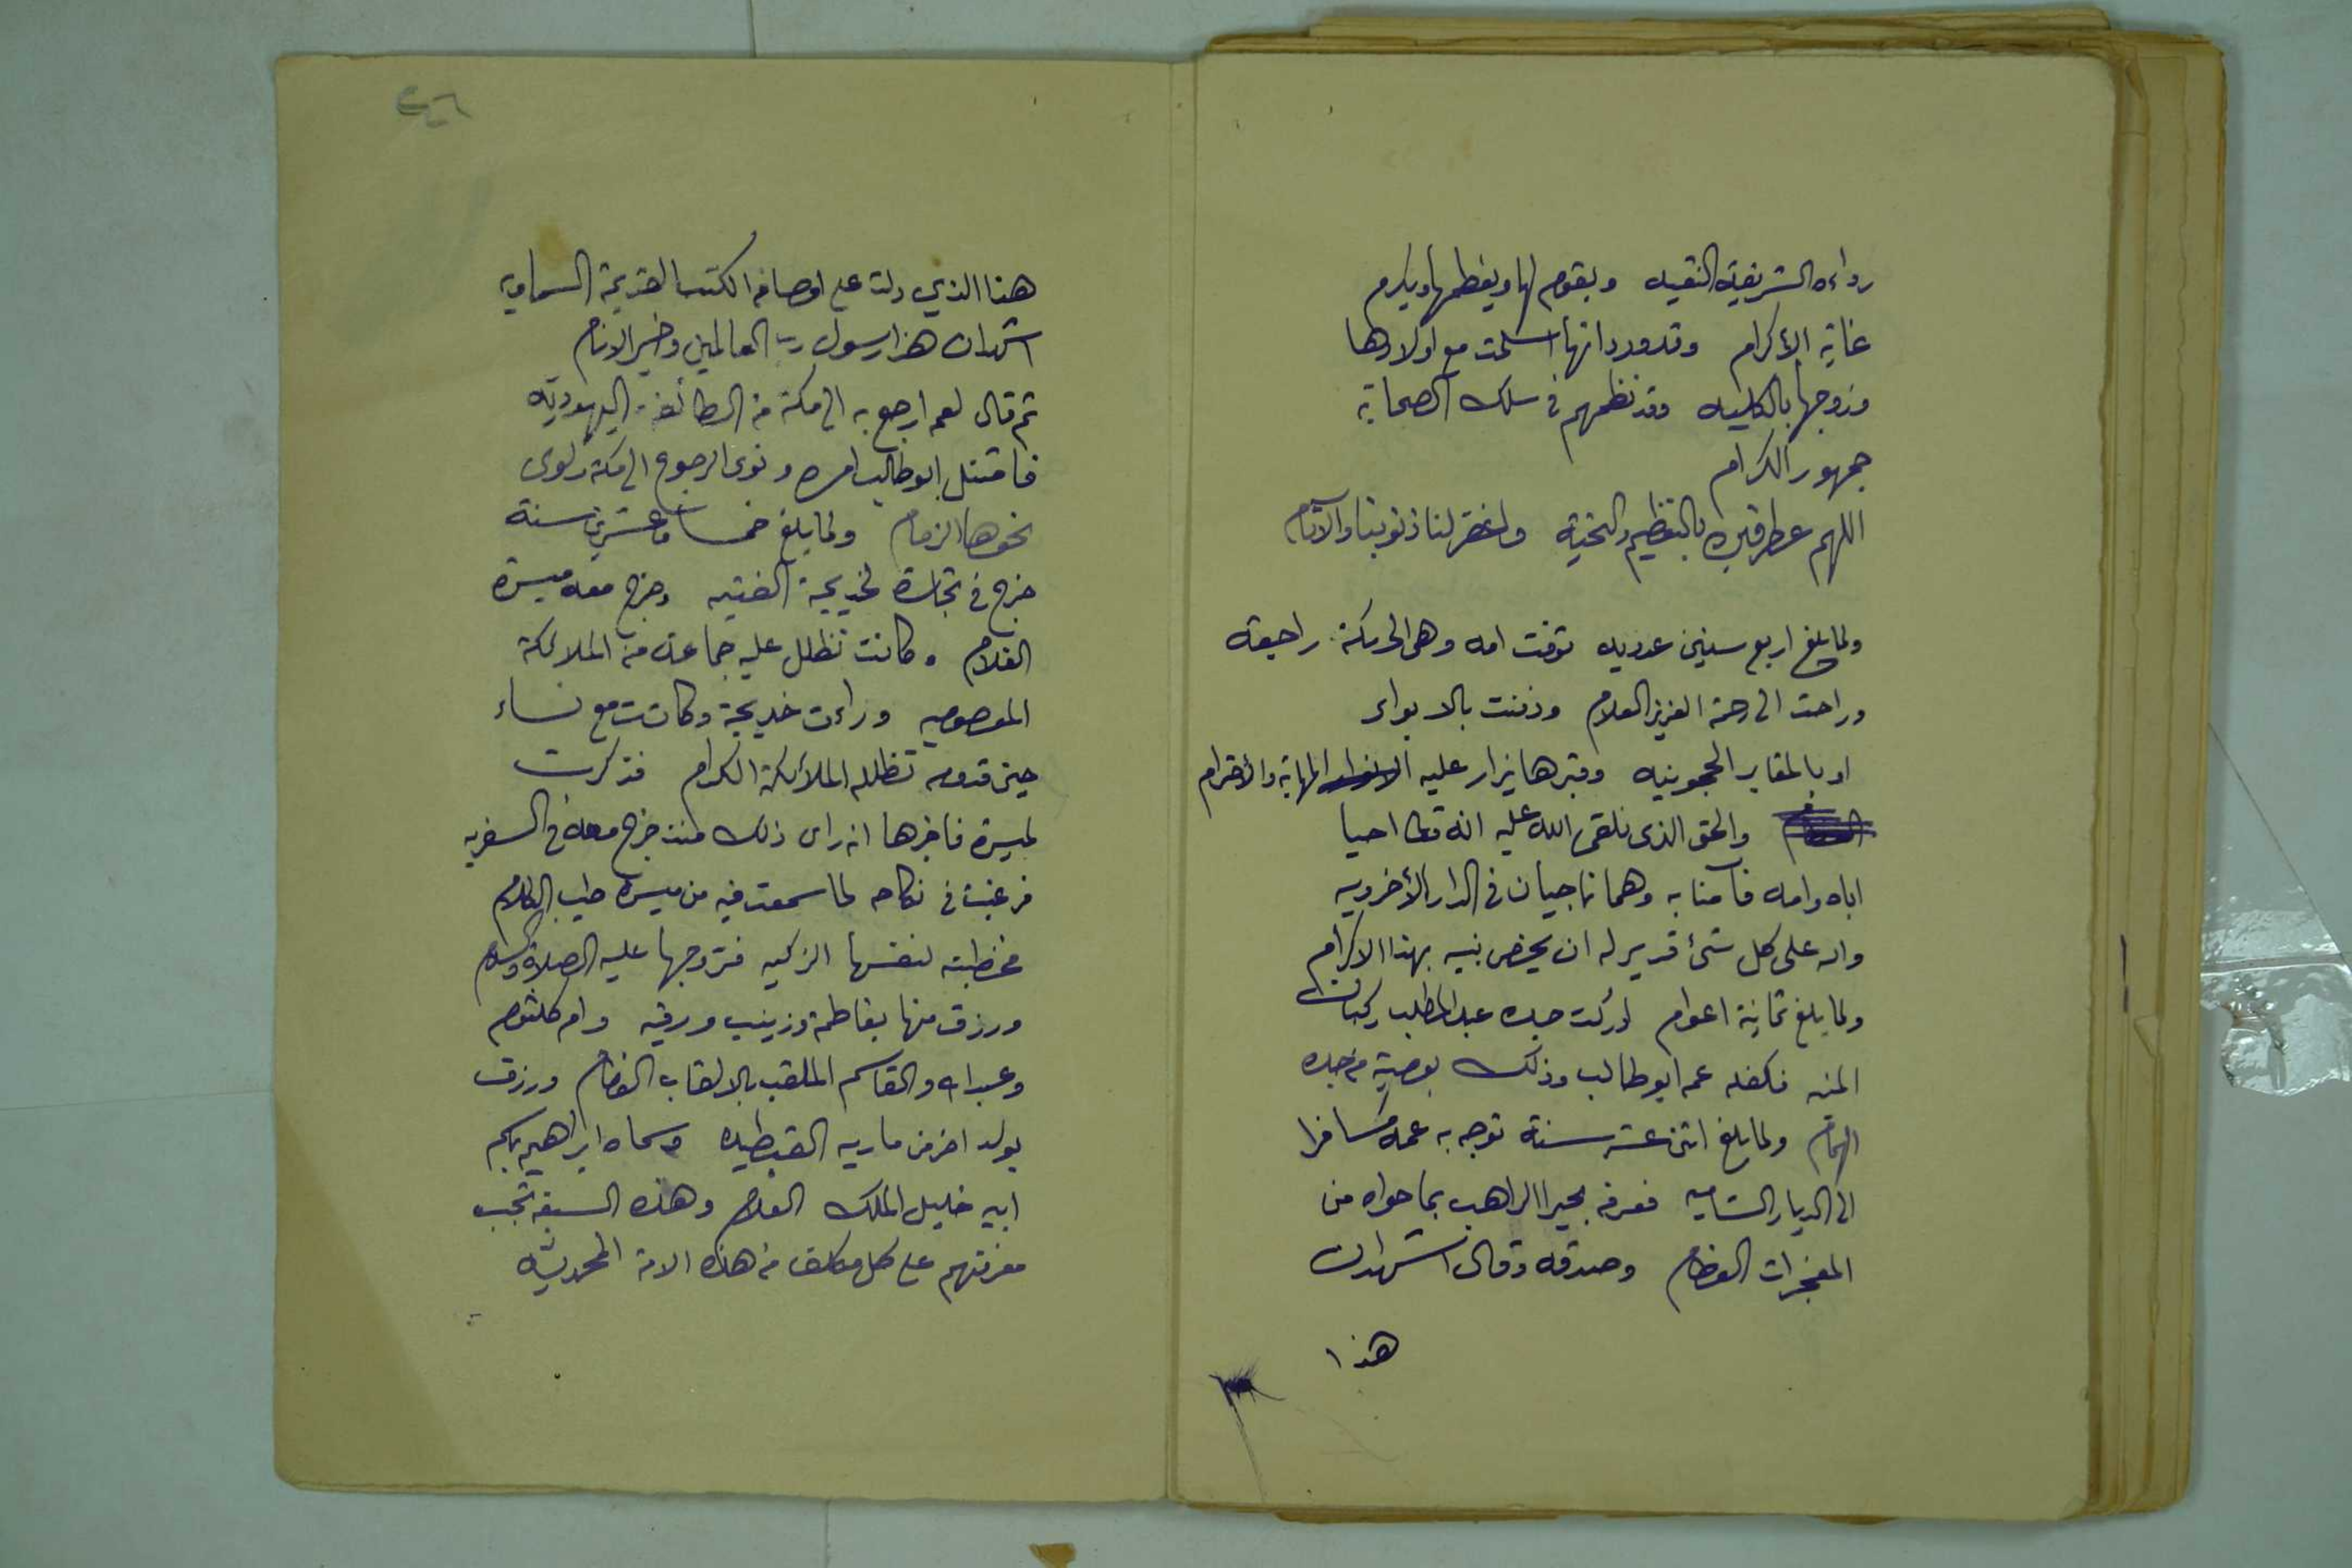 رداءه الشريفيه النقيه ويقوم لها ويعظمها ويكرم
غاية الإكرام وقد ورد انها اسلمت مع اولادها
وزوجها بالكليه وقد نظمهم في سلك الصحابة
جمهور الكرام
اللهم عطر قبره بالتعظيم والتحية واغفر لنا ذنوبنا والآثام
ولما بلغ اربع سنين عدديه توفت امه وهى الى مكة راجعة
وراحت الى رحمة العزيز العلام ودفنت بالابواء
او بالمقابر الحجونيه وقبرها يزار عليه المهابة والأحترام
والحق الذى نلقى الله عليه انه تعا احيا
اباه وامه فآمنا به وهما ناجيان في الدار الأخرويه
والله على كل شئ قدير له ان يخص نبيه بهذا الاكرام
ولما بلغ ثمانية اعوام ادركت جده عبد المطلب ركبان
المنيه فكفله عمه ابو طالب وذلك بوصية من جده
الهمام ولما بلغ اثنى عشر سنة توجه به عمه مسافرا
الى الديار الشاميه فعرفه بحيرا الراهب بما حواه من
المعجزات العظام وصدقه وقال اشهد ان
هذا
٢٦
هذا الذي دلت على اوصافه الكتب القديمة السماويه
اشهد ان هذا رسول رب العالمين وخير الانام
ثم قال لعمه ارجع به الى مكة من الطائفة اليهوديه
فامتثل ابو طالب امره ونوى الرجوع الى مكة ولوى
نحوها الزمام ولما بلغ خمسا وعشرين سنة
خرج في تجارة لخديجة الفتيه وخرج معه ميسره
الغلام وكانت تظلل عليه جماعة من الملائكة
المعصوميه وراءت خديجة وكانت مع نساء
حين قدومه تظلله الملأئكة الكرام فذكرت
لميسرة فاخبرها انه راى ذلك منذ خرج معه في السفريه
فرغبت في نكاحه لما سمعت فيه من ميسره طيب الكلام
فخطبته لنفسها الزكيه فتزوجها عليه الصلاة والسلام
ورزق منها بفاطمة وزينب ورقيه وام كلثوم
وعبد الله والقاسم الملقب بالالقاب الفخام ورزق
بولد اخر من ماريه القبطيه وسماه ابراهيم باسم
ابيه خليل الملك العلام وهذه السبعة تجب
معرفتهم على كل مكلف من هذه الامة المحمديه